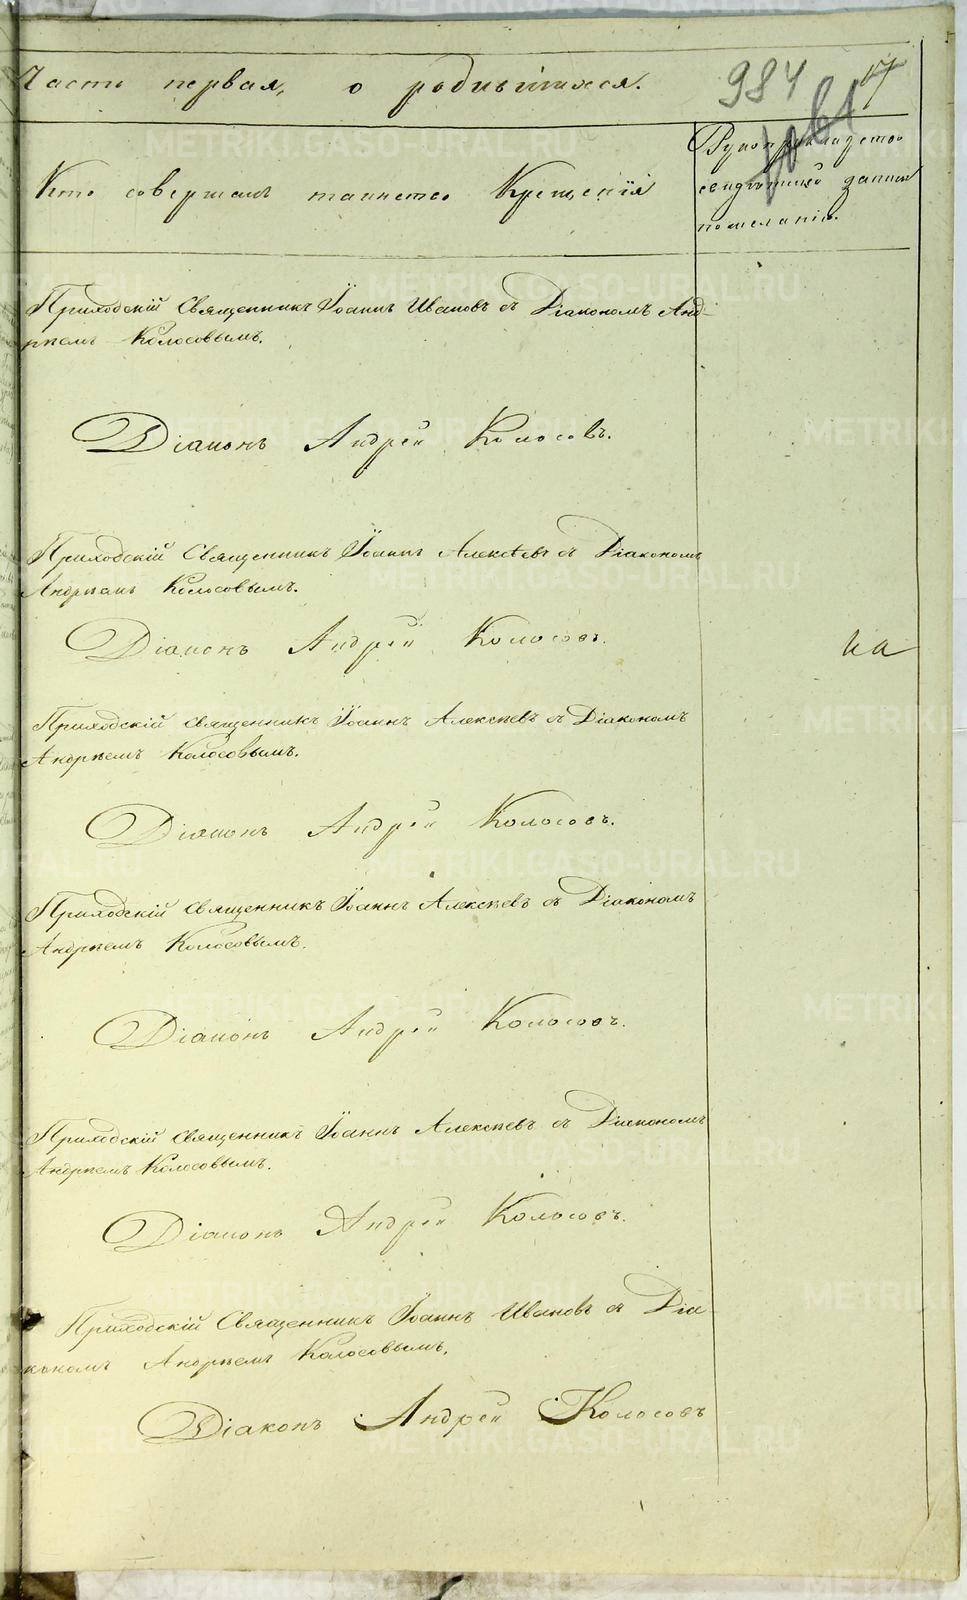 Часть первая, о родившихся.
984
17
Кто совершалъ таинство Крещенія
Рукоприкладство
свидѣтелей записи
по желанію.
Приходскій Священникъ Іоаннъ Ивановъ съ Діакономъ Анд-
реемъ Колосовымъ.
Діаконъ Андрей Колосовъ.
Приходскій Священникъ Іоаннъ Алексѣевъ съ Діакономъ
Андреемъ Колосовымъ.
Діаконъ Андрей Колосовъ.
на
Приходскій священникъ Іоаннъ Алексѣевъ съ Діакономъ
Андреемъ Колосовымъ.
Діаконъ Андрей Колосовъ.
Приходскій священникъ Іоаннъ Алексѣевъ съ Діакономъ
Андреемъ Колосовымъ.
Діаконъ Андрей Колосовъ.
Приходскій священникъ Іоаннъ Алексѣевъ съ Діакономъ
Андреемъ Колосовымъ.
Діаконъ Андрей Колосовъ.
Приходскій Священникъ Іоаннъ Ивановъ съ Діа-
кономъ Андреемъ Колосовымъ.
Діаконъ Андрей Колосовъ
METRIKI.GASO-URAL.RU